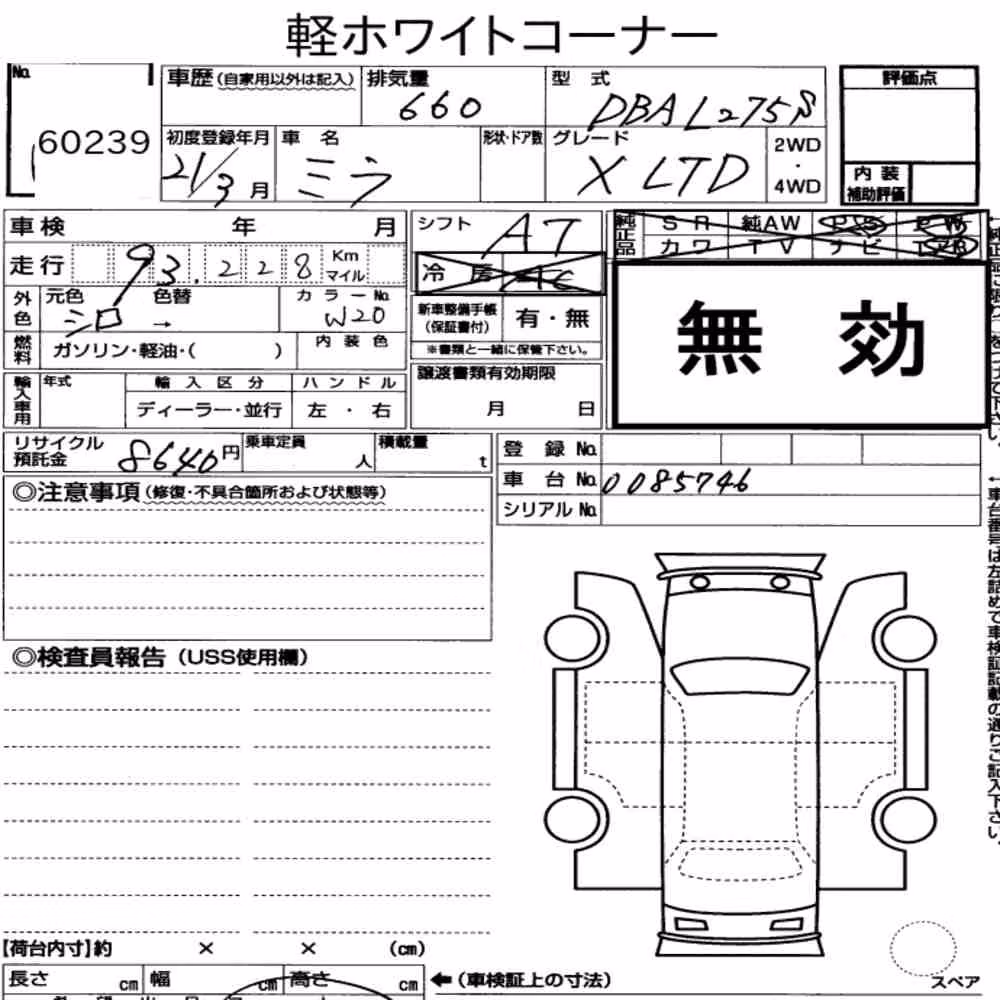 軽ホワイトコーナー
No. 60239
車歴(自家用以外は記入) 排気量 660 型式 DBA L275S
評価点
初度登録年月 21/3月 車名 ミラ 形状・ドア数 グレード X LTD 2WD・4WD
内装補助評価
車検 年 月
シフト AT
純正品 SR 純AW PS PW
カワ TV ナビ エアB
走行 93,228 Km マイル
冷房 AC
無効
外色 元色 シロ → 色替 カラーNo. W20
新車整備手帳(保証書付) 有・無
※書類と一緒に保管下さい。
燃料 ガソリン・軽油・( ) 内装色
輸入車用 年式 輸入区分 ディーラー・並行 ハンドル 左・右
譲渡書類有効期限 月 日
リサイクル預託金 8640円 乗車定員 人 積載量 t
登録No.
車台No. 0085746
シリアルNo.
◎注意事項(修復・不具合箇所および状態等)
◎検査員報告(USS使用欄)
【荷台内寸】約 × × (cm)
長さ cm 幅 cm 高さ cm
←(車検証上の寸法)
スペア
←車台番号は左詰めで車検証記載の通りご記入下さい。